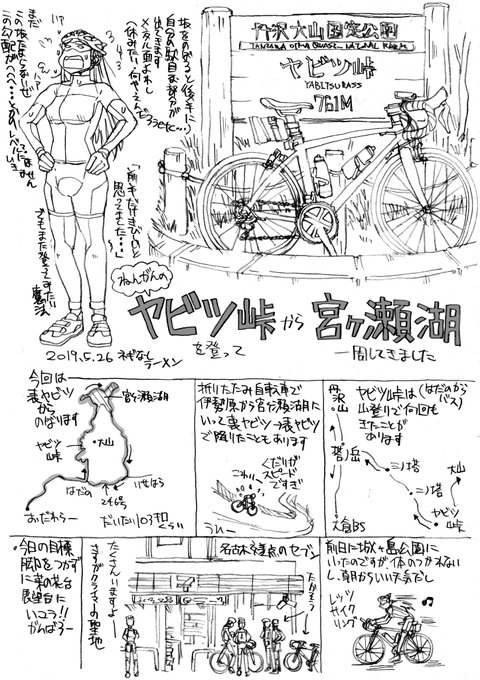 丹沢大山国定公園
TANZAWA OYAMA QUASI-NATIONAL PARK
ヤビツ峠
YABITSU PASS
761M
坂をのぼると(後半に)
自分の駄目な部分が
出てきます
メンタル面よわし
(休みたい、何やってんだろうとか…)
「前半だけきびしいと
思ってました…」
でもまた登ってすすみたい
魔法
ねんがんの
ヤビツ峠から宮ヶ瀬湖
を登って
一周してきました
2019.5.26 ネギなし
ラーメン
今回は
表ヤビツ
から
のぼります
宮ヶ瀬湖
ヤビツ
峠
大山
はだの
246号
いせはら
おだわらー
だいたい103キロ
くらい
折りたたみ自転車で
伊勢原から宮ヶ瀬湖に
いって裏ヤビツ→表ヤビツ
で降りたこともあります
くだりが
スピード
ですぎ
こわいー
うひー
ヤビツ峠は(はだのから
バス)
山登りで何回も
きたことが
あります
丹沢
山
塔ノ岳
三ノ塔
二ノ塔
大山
大倉BS
ヤビツ
峠
今日の目標
脚をつかず
に菜の花台
展望台に
いこう!!
がんばろー
名古木交差点のセブン
たくさんいますよー
さすがクライマーの聖地
たかまるー
前日に城ヶ島公園に
いったのですが、体のつかれない
し、朝からいい天気だし
レッツ
サイク
リング